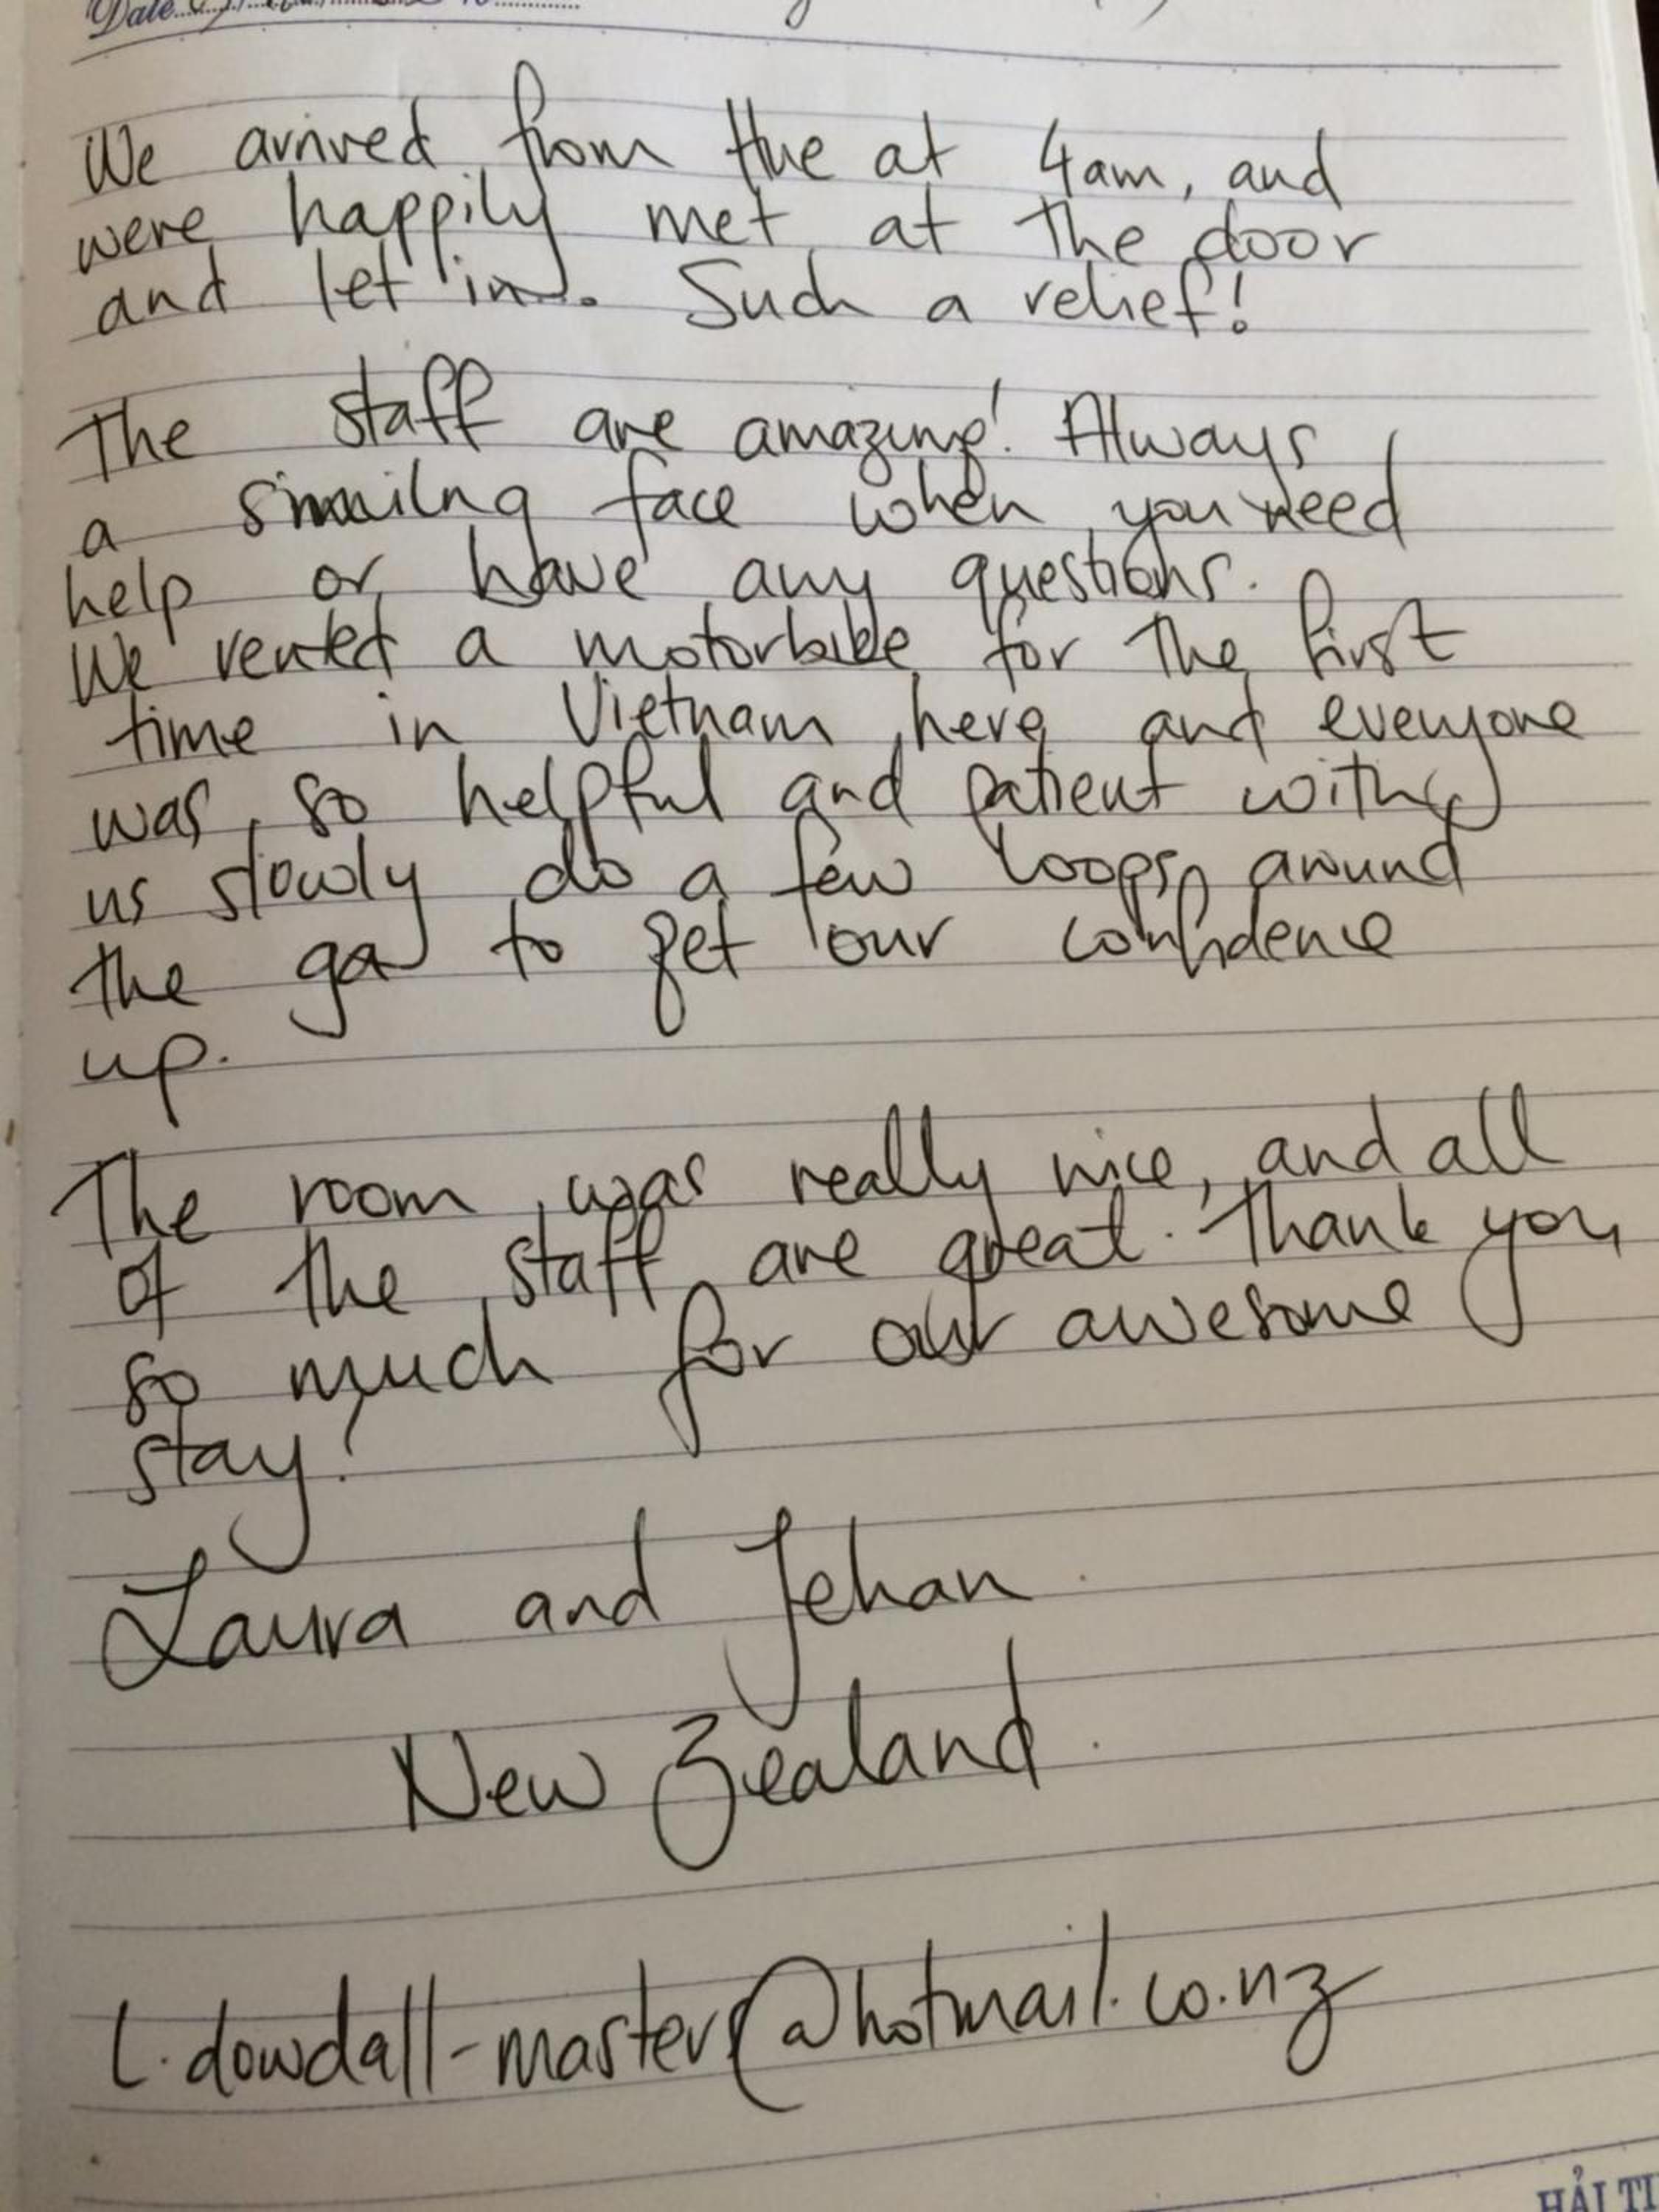 Date
We arrived from Hue at 4am, and
were happily met at the door
and let in. Such a relief!
The staff are amazing! Always
a smailng face when you need
help or have any questions.
We rented a motorbike for the first
time in Vietnam here and everyone
was so helpful and patient with
us slowly do a few loops around
the ga to get our confidence
up.
The room was really nice, and all
of the staff are great. Thank you
so much for our awesome
stay!
Laura and Jehan
New Zealand.
l.dowdall-masters@hotmail.co.nz
HẢI TI